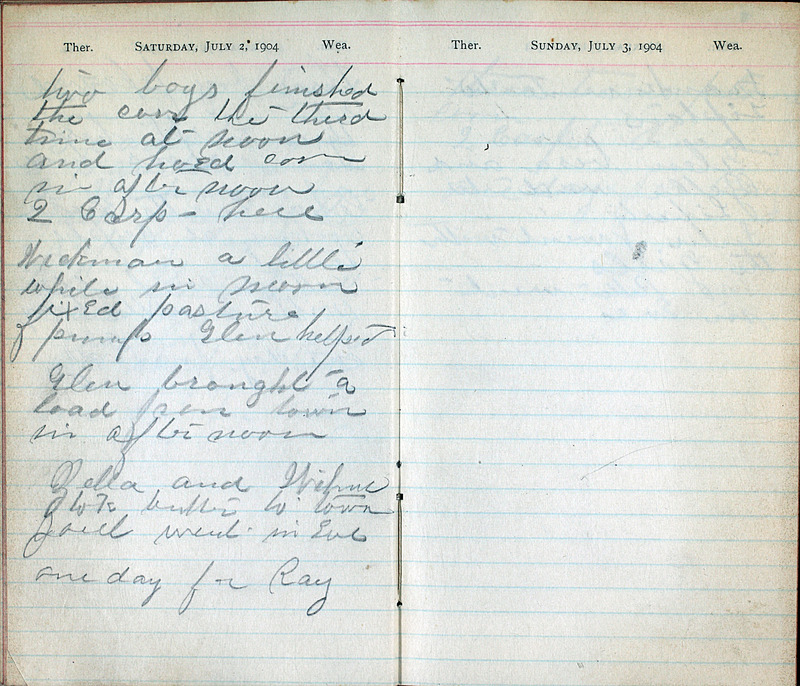 Ther. SATURDAY, JULY 2, 1904 Wea.
two boys finished
the corn the third
time at noon
and hoed corn
in after noon
2 Carp - here
Hickman a little
while in noon
fixed pasture
pump Glen helped
Glen brought a
load from town
in after noon
Della and
butter to town
went in Eve
one day for Ray
Ther. SUNDAY, JULY 3, 1904 Wea.